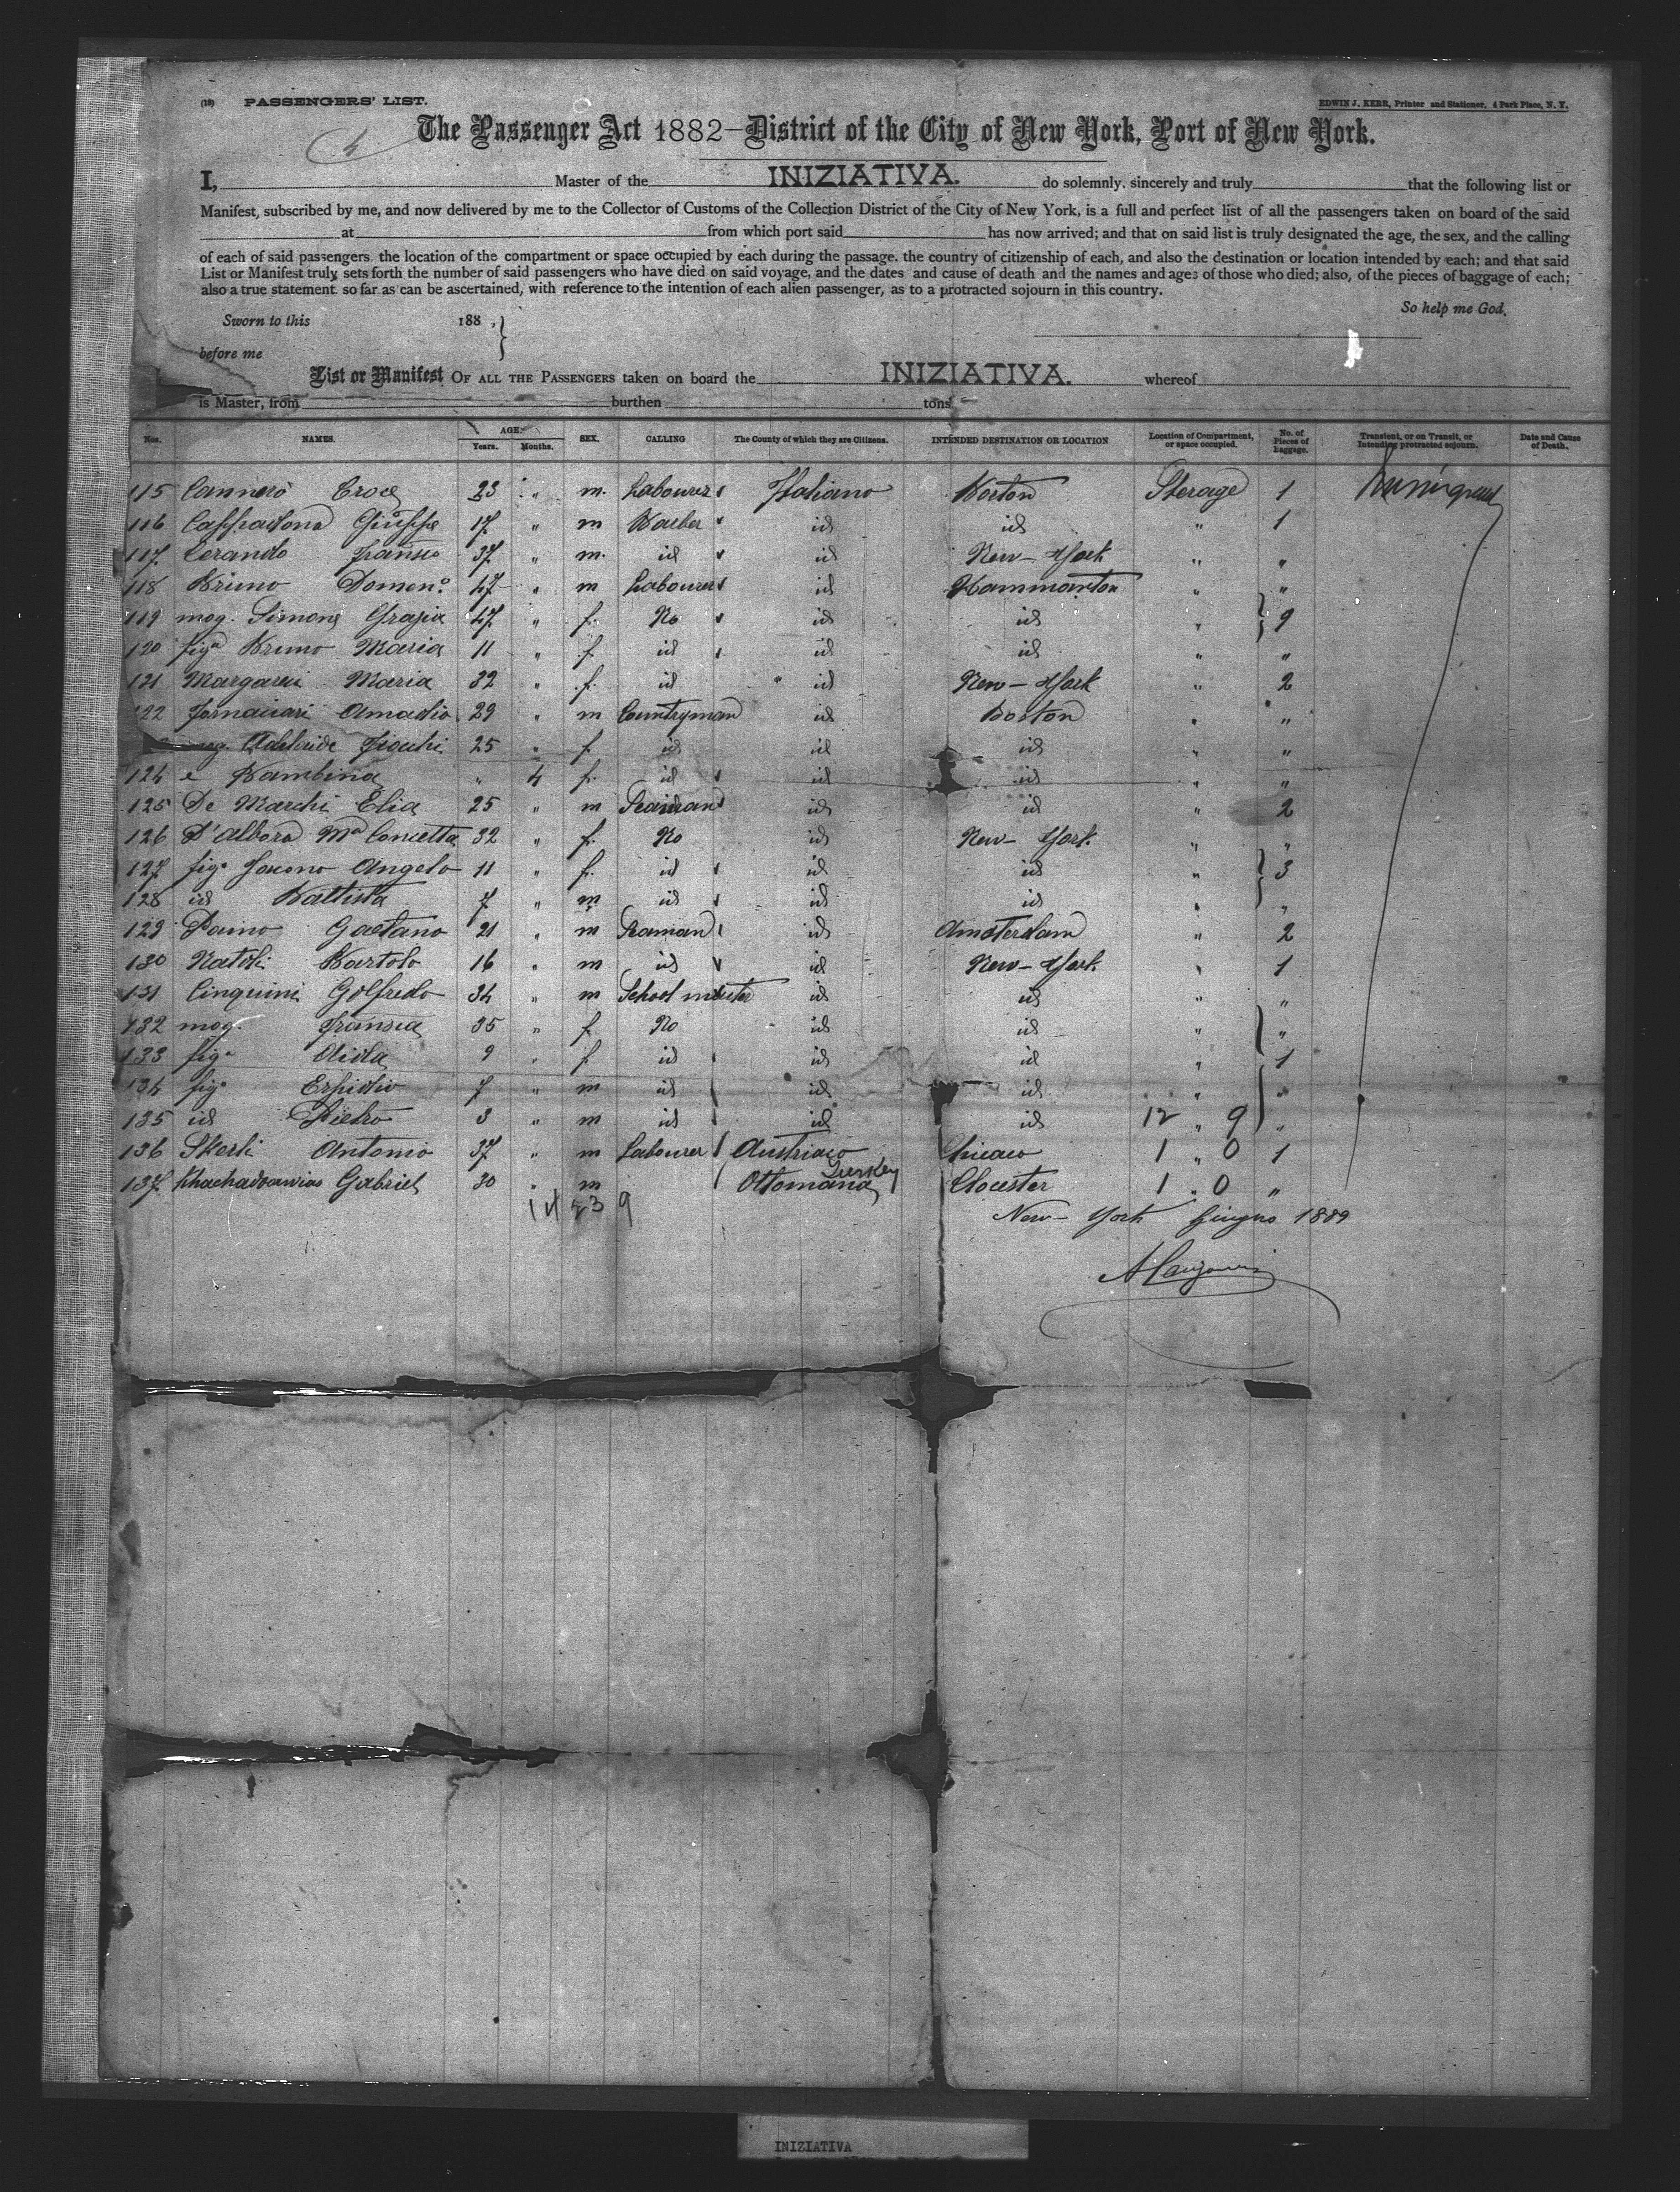 (18) PASSENGERS' LIST.
EDWIN J. KERR, Printer and Stationer, 4 Park Place, N. Y.
4
The Passenger Act 1882—District of the City of New York, Port of New York.
I, Master of the INIZIATIVA. do solemnly, sincerely and truly that the following list or
Manifest, subscribed by me, and now delivered by me to the Collector of Customs of the Collection District of the City of New York, is a full and perfect list of all the passengers taken on board of the said
at from which port said has now arrived; and that on said list is truly designated the age, the sex, and the calling
of each of said passengers, the location of the compartment or space occupied by each during the passage, the country of citizenship of each, and also the destination or location intended by each; and that said
List or Manifest truly sets forth the number of said passengers who have died on said voyage, and the dates and cause of death and the names and ages of those who died; also, of the pieces of baggage of each;
also a true statement so far as can be ascertained, with reference to the intention of each alien passenger, as to a protracted sojourn in this country.
So help me God.
Sworn to this 188 ,
before me
List or Manifest OF ALL THE PASSENGERS taken on board the INIZIATIVA. whereof
is Master, from burthen tons
Nos. NAMES. AGE. Years. Months. SEX. CALLING The County of which they are Citizens. INTENDED DESTINATION OR LOCATION Location of Compartment, or space occupied. No. of Pieces of Baggage. Transient, or on Transit, or Intending protracted sojourn. Date and Cause of Death.
115 Cannero Croce 23 " m. Labourer Italiano Boston Sterage 1
116 Cappadona Giuseppe 17 " m Barber id id " 1
117 Cerando 37 " m. id id New-York " "
118 Bruno Domen.o 47 " m Labourer id Hammonton " "
119 mog. Simone Grazia 47 " f. No id id " 9
120 figa Bruno Maria 11 " f id id id " "
121 Maria 32 " f. id id New-York " 2
122 Amadio 29 " m Countryman id Boston " "
mog. Adelaide 25 " f id id id " "
124 e Bambina " 4 f. id id id " "
125 De Marchi Elia 25 " m Seaman id id " 2
126 D'Albora Ma Concetta 32 " f. No id New-York. " "
127 fig. Angelo 11 " f. id id id " 3
128 id Battista 7 " m id id id " "
129 Paino Gaetano 21 " m Seaman id Amsterdam " 2
130 Natoli Bartolo 16 " m id id New-York. " 1
131 Cinquini Golfredo 34 " m School master id id " "
132 mog. 35 " f No id id " "
133 figa Aida 9 " f id id id " 1
134 figo 7 " m id id id " "
135 id Pietro 3 " m id id id 12 " 9 "
136 Skerli Antonio 37 " m Labourer Austriaco Chicaco 1 " 0 1
137 Gabriel 30 " m Ottomana Turkey Glocester 1 " 0 "
14 23 9
New-York Giugno 1889
INIZIATIVA